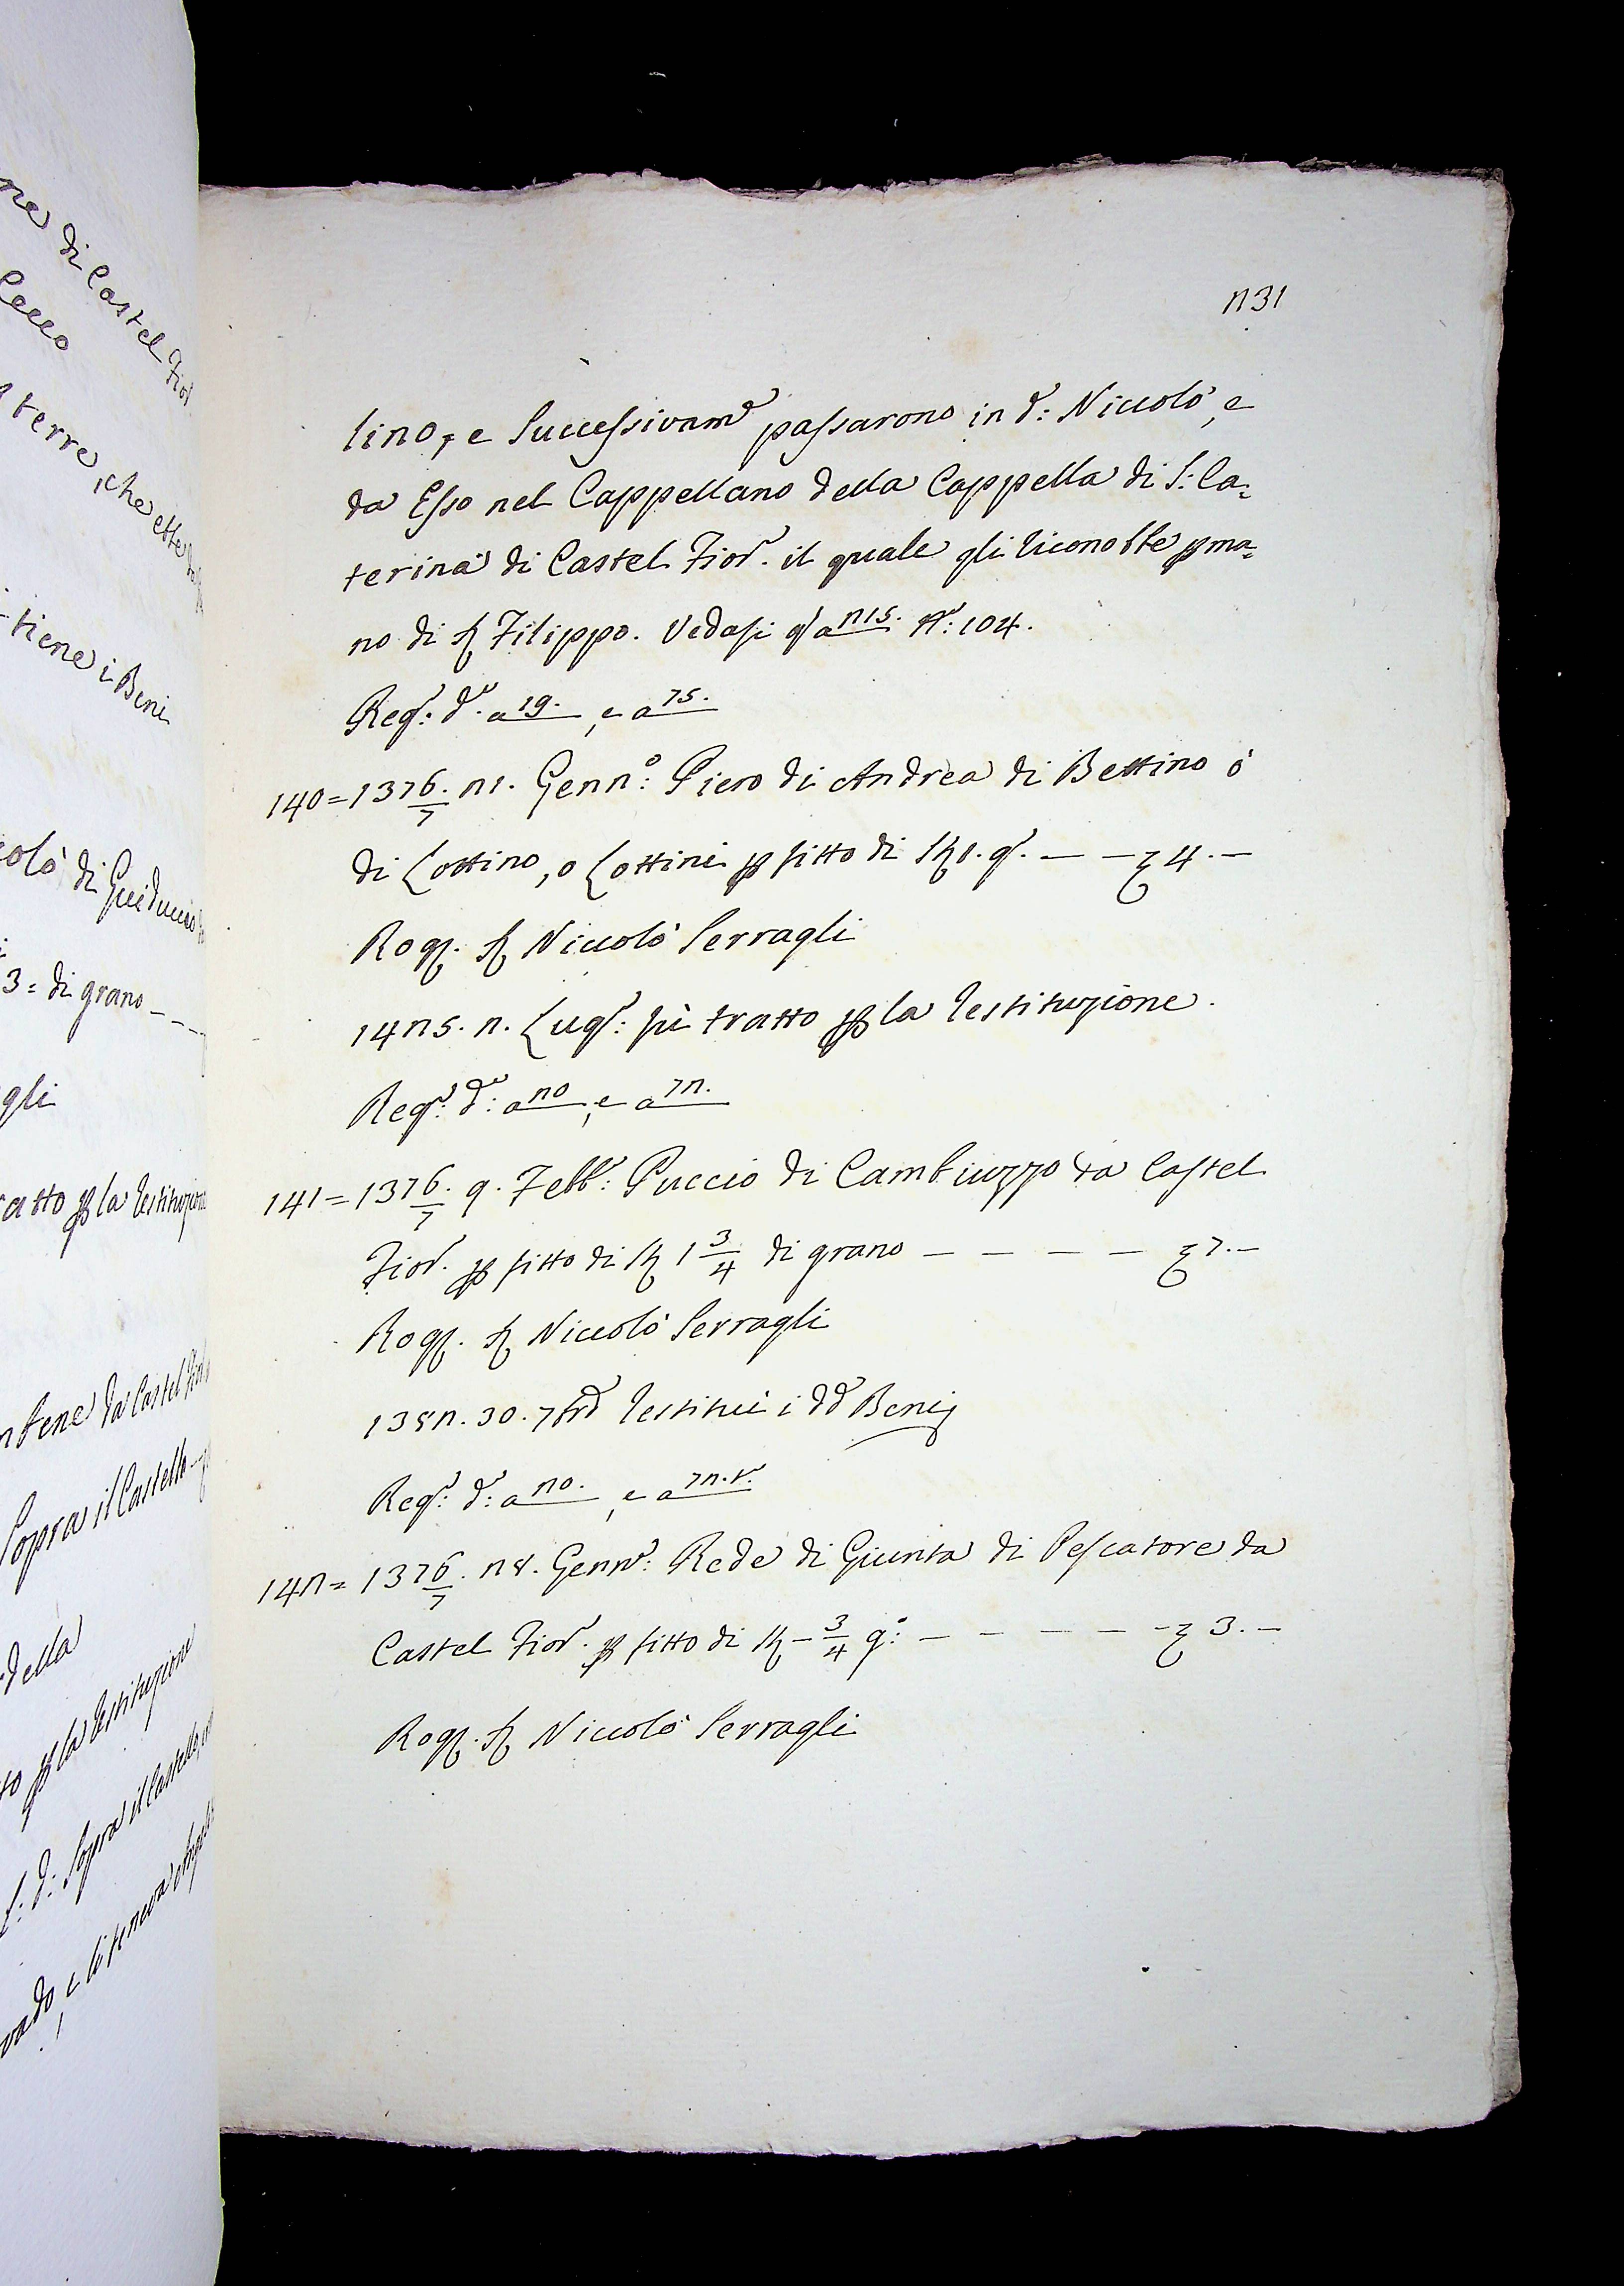 231
lino, e Successivam.e passarono in d.: Niccolò, e
da Esso nel Cappellano della Cappella di S: Ca=
terina di Castel Fior.o il quale gli riconobbe p ma=
no di Sr Filippo. Vedasi qsto a 215. No: 104.
Reg.o: d.o a 19. , e a 75.
140 = 1376/7. 21. Genn.o: Piero di Andrea di Bettino ò
di Lottino, o Lottini p fitto di st 1. g.o — — £ 4. —
Rog. Sr Niccolò Serragli
1425. 2. Lug.o: fù tratto p la restituzione.
Reg.o: d.o: a 20 , e a 72.
141 = 1376/7. 9. Febb.o: Puccio di Cambiuzzo da Castel
Fior.o p fitto di st 1 3/4 di grano — — — — £ 7. —
Rog. Sr Niccolò Serragli
1382. 30. 7bre restituì i dd Beni
Reg.o: d.o: a 20. , e a 72. t.o
142 = 1376/7. 28. Genn.o: Rede di Giunta di Pescatore da
Castel Fior.o p fitto di st — 3/4 g.o: — — — — — £ 3. —
Rog. Sr Niccolò Serragli
ne di Castel Fior
terre, che
tiene i Beni
colò di Guiduccio
3 = di grano — — —
gli
ratto p la restituzione
da Castel Fior
Sopra il Castello —
della
to p la restituzione
d: Sopra il Castello,